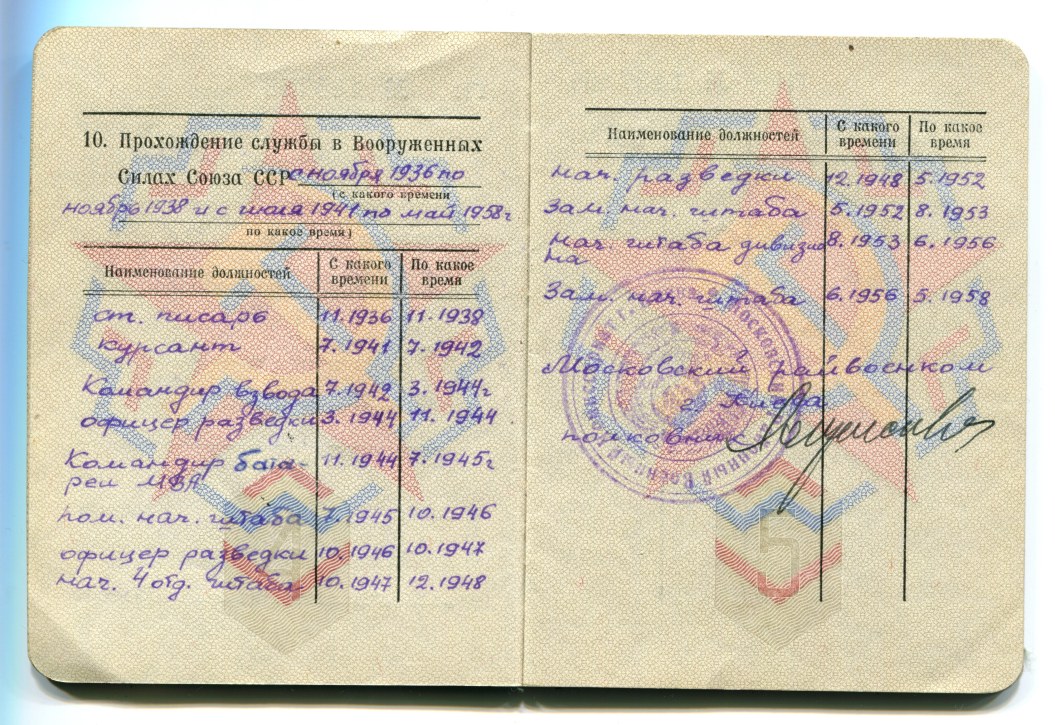 10. Прохождение службы в Вооруженных
Силах Союза ССР с ноября 1936 по
(с какого времени
ноябрь 1938 и с июля 1941 по май 1958 г
по какое время)
Наименование должностей С какого времени По какое время
ст. писарь 11.1936 11.1938
курсант 7.1941 7.1942
Командир взвода 7.1942 3.1944 г
офицер разведки 3.1944 11.1944
Командир бата- 11.1944 7.1945 г
реи
пом. нач. штаба 7.1945 10.1946
офицер разведки 10.1946 10.1947
нач. 4 отд. штаба 10.1947 12.1948
4
Наименование должностей С какого времени По какое время
нач. разведки 12.1948 5.1952
Зам. нач. штаба 5.1952 8.1953
нач. штаба дивизио 8.1953 6.1956
на
Зам. нач. штаба 6.1956 5.1958
Московский райвоенком
г. Киева
полковник
5